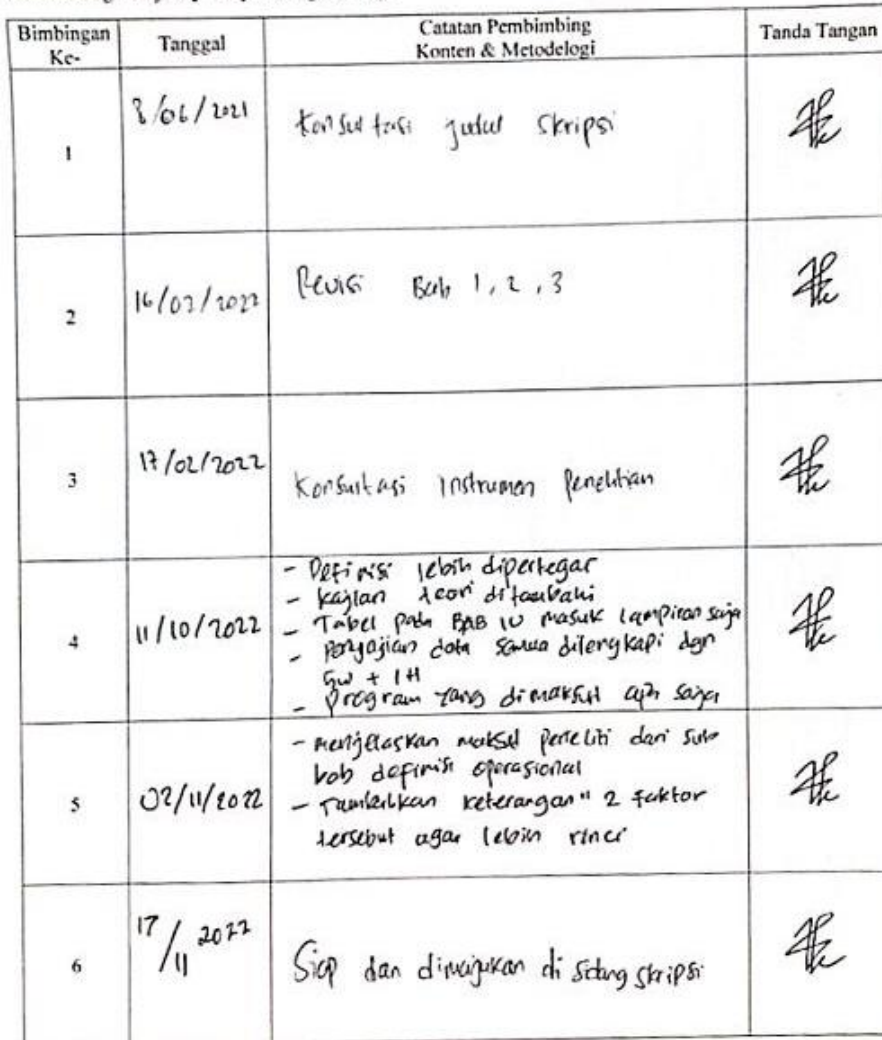 Bimbingan Ke- Tanggal Catatan Pembimbing Konten & Metodelogi Tanda Tangan
1 8/06/2021 Konsultasi judul Skripsi
2 16/02/2022 Revisi Bab 1, 2, 3
3 17/02/2022 Konsultasi instrumen Penelitian
4 11/10/2022
- Definisi lebih dipertegar
- kajian teori ditambahi
- Tabel pada BAB IV masuk lampiran saja
- penyajian data semua dilengkapi dgn
5W + 1H
- program yang dimaksud apa saja
5 02/11/2022
- menjelaskan maksud peneliti dari sub
bab definisi operasional
- Tambahkan keterangan" 2 faktor
tersebut agar lebih rinci
6 17/11 2022 Siap dan dimajukan di sidang skripsi